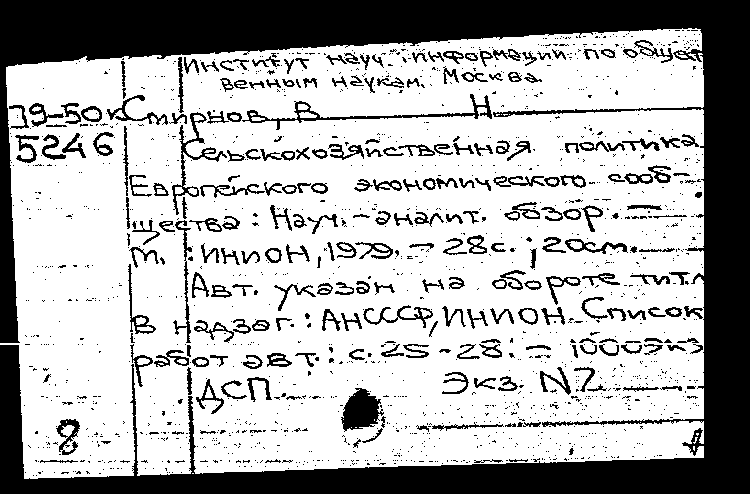 Институт науч. информации по общест
венным наукам. Москва.
79-50к Смирнов, В Н
5246 Сельскохозяйственная политика
Европейского экономического сооб-
щества : Науч.-аналит. обзор. —
М. : ИНИОН, 1979. — 28с. ; 20см.
Авт. указан на обороте титл
В надзаг. : АН СССР, ИНИОН. Список
работ авт. : с. 25-28. — 1000экз
ДСП. Экз. N2
8